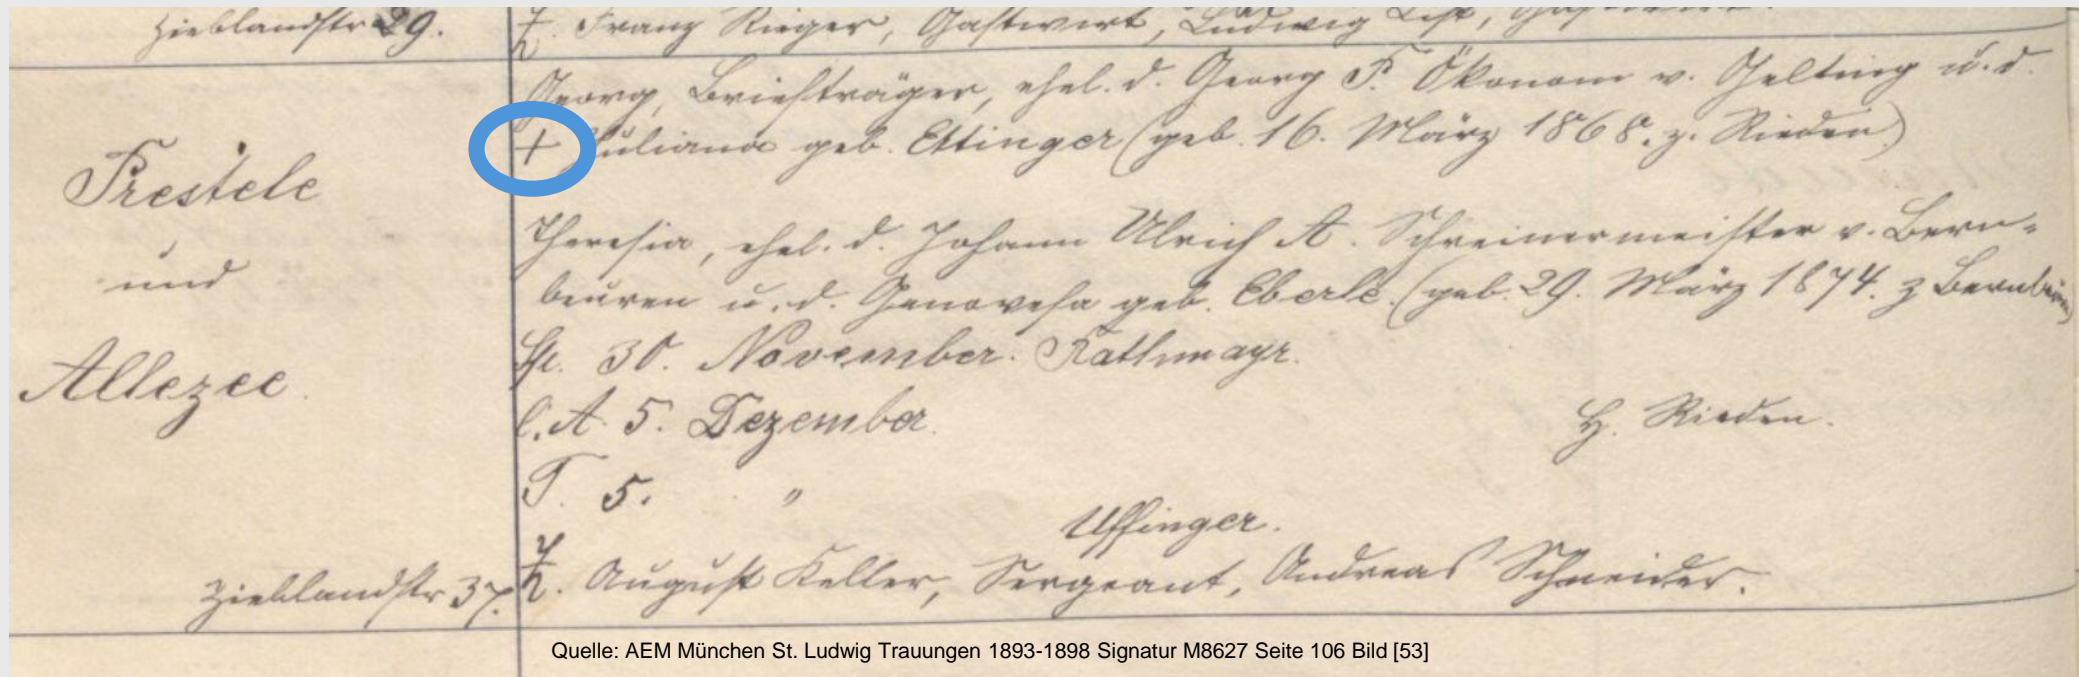 Zieblandstr 29. Z. Franz Rieger, Gastwirt, Ludwig
Georg, Briefträger, ehel. d. Georg P. Ökonom v. Gelting u. d.
+ Juliana geb. Ettinger (geb. 16. März 1868. z. Rieden)
Prestele
Theresia, ehel. d. Johann Ulrich A. Schreinermeister v. Bern-
und
beuren u. d. Genovefa geb. Eberle. (geb. 29. März 1874. z Bernbeuren)
Allezee.
Sp. 30. November. Rathmayr.
C. A. 5. Dezember. H. Rieden.
T. 5. "
Uffinger.
Zieblandstr 37. Z. August Keller, Sergeant, Andreas Schneider.
Quelle: AEM München St. Ludwig Trauungen 1893-1898 Signatur M8627 Seite 106 Bild [53]